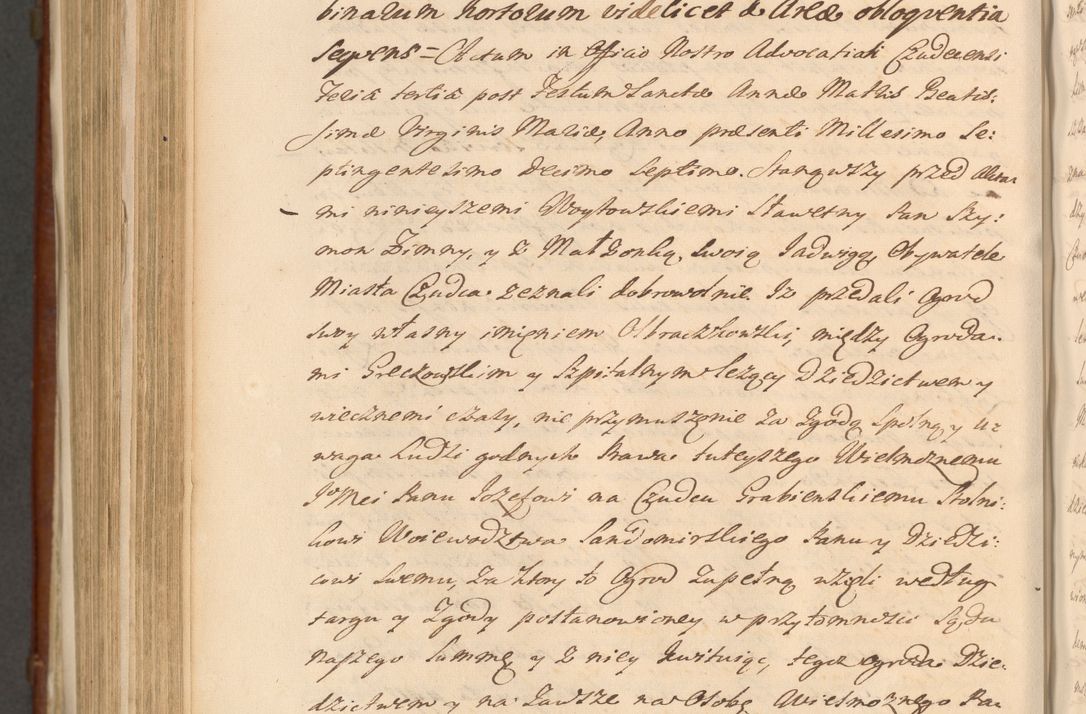 binarum hortorum videlicet & Areæ obloquentia
Sequens = Actum in Officio Nostro Advocatiali Czudecensi
Feria tertia post Festum Sanctæ Annæ Matris Beatis:
simæ Virginis Mariæ, Anno præsenti Millesimo Se:
ptingentesimo Decimo Septimo. Stanąwszy przed Akta:
mi ninieyszemi Woytowskiemi Sławetny Pan Szy:
mon Zimny, y z Małżonką swoią Jadwigą, Obywatele
Miasta Czudca zeznali dobrowolnie. Iż przedali Ogrod
swoy własny imieniem Olbrachtowski, między Ogroda:
mi Greczowskim y Szpitalnym leżący Dziedzictwem y
wiecznemi czasy, nie przymuszenie za Zgodą Spolną y u:
waga Ludzi godnych Prawa tuteyszego Wielmożnemu
JoMci Panu Jozefowi na Czudcu Grabienskiemu Stolni:
kowi Woiewodztwa Sandomirskiego Panu y Dziedzi:
cowi swemu, za ktory to Ogrod zupełną wzięli według
targu y Zgody postanowioney w przytomności Sądu
naszego Summę y z niey kwituiąc, tegoż ogroda Dzie:
dzictwem y na zawsze na Osobę Wielmożnego Pa: